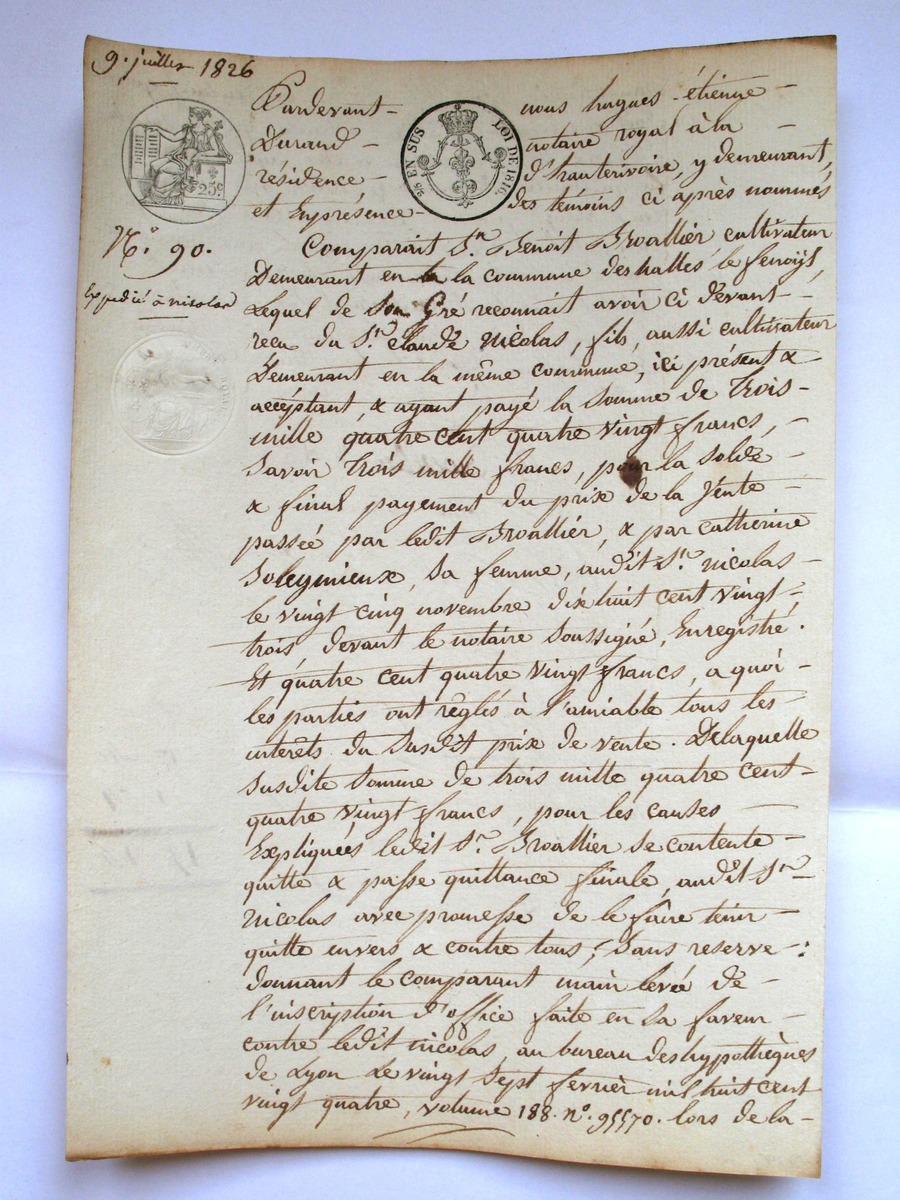 9. juillet 1826
Pardevant - nous hugues-étienne -
Durand - notaire royal à la -
résidence - d'hauterivoire, y demeurant,
et En présence - des témoins ci après nommés
25 EN SUS LOI DE 1816.
25c.
N.° 90.
Expédié à nicolas
Comparait S.r Benoit Broallier cultivateur
Demeurant en la commune des halles le fenoyl,
Lequel de Son Gré reconnait avoir ci devant -
recu du S.r claude Nicolas, fils, aussi cultivateur
Demeurant en la même commune, ici présent &
acceptant, & ayant payé la somme de Trois -
mille quatre cent quatre vingt francs, -
Savoir Trois mille francs, pour la solde -
& final payement du prix de la Vente -
passée par ledit Broallier, & par catherine
Soleymieux, sa femme, audit S.r nicolas -
le vingt cinq novembre dix huit cent vingt -
trois devant le notaire soussigné, Enregistré.
Et quatre cent quatre vingt francs, a quoi -
les parties ont règlés à l'amiable tous les -
intérêts du susdit prix de vente. Delaquelle
susdite somme de trois mille quatre cent -
quatre vingt francs, pour les causes -
Expliquées, ledit S.r Broallier se contente -
quitte & passe quittance finale, audit S.r -
Nicolas avec promesse de le faire tenir -
quitte envers & contre tous; Sans reserve -:
donnant le comparant main levée de -
l'inscription d'office faite en sa faveur -
contre ledit nicolas, au bureau des hypothèques
de Lyon Le vingt Sept fevrier mil huit cent
vingt quatre, volume 188. n.° 95570. lors de la -